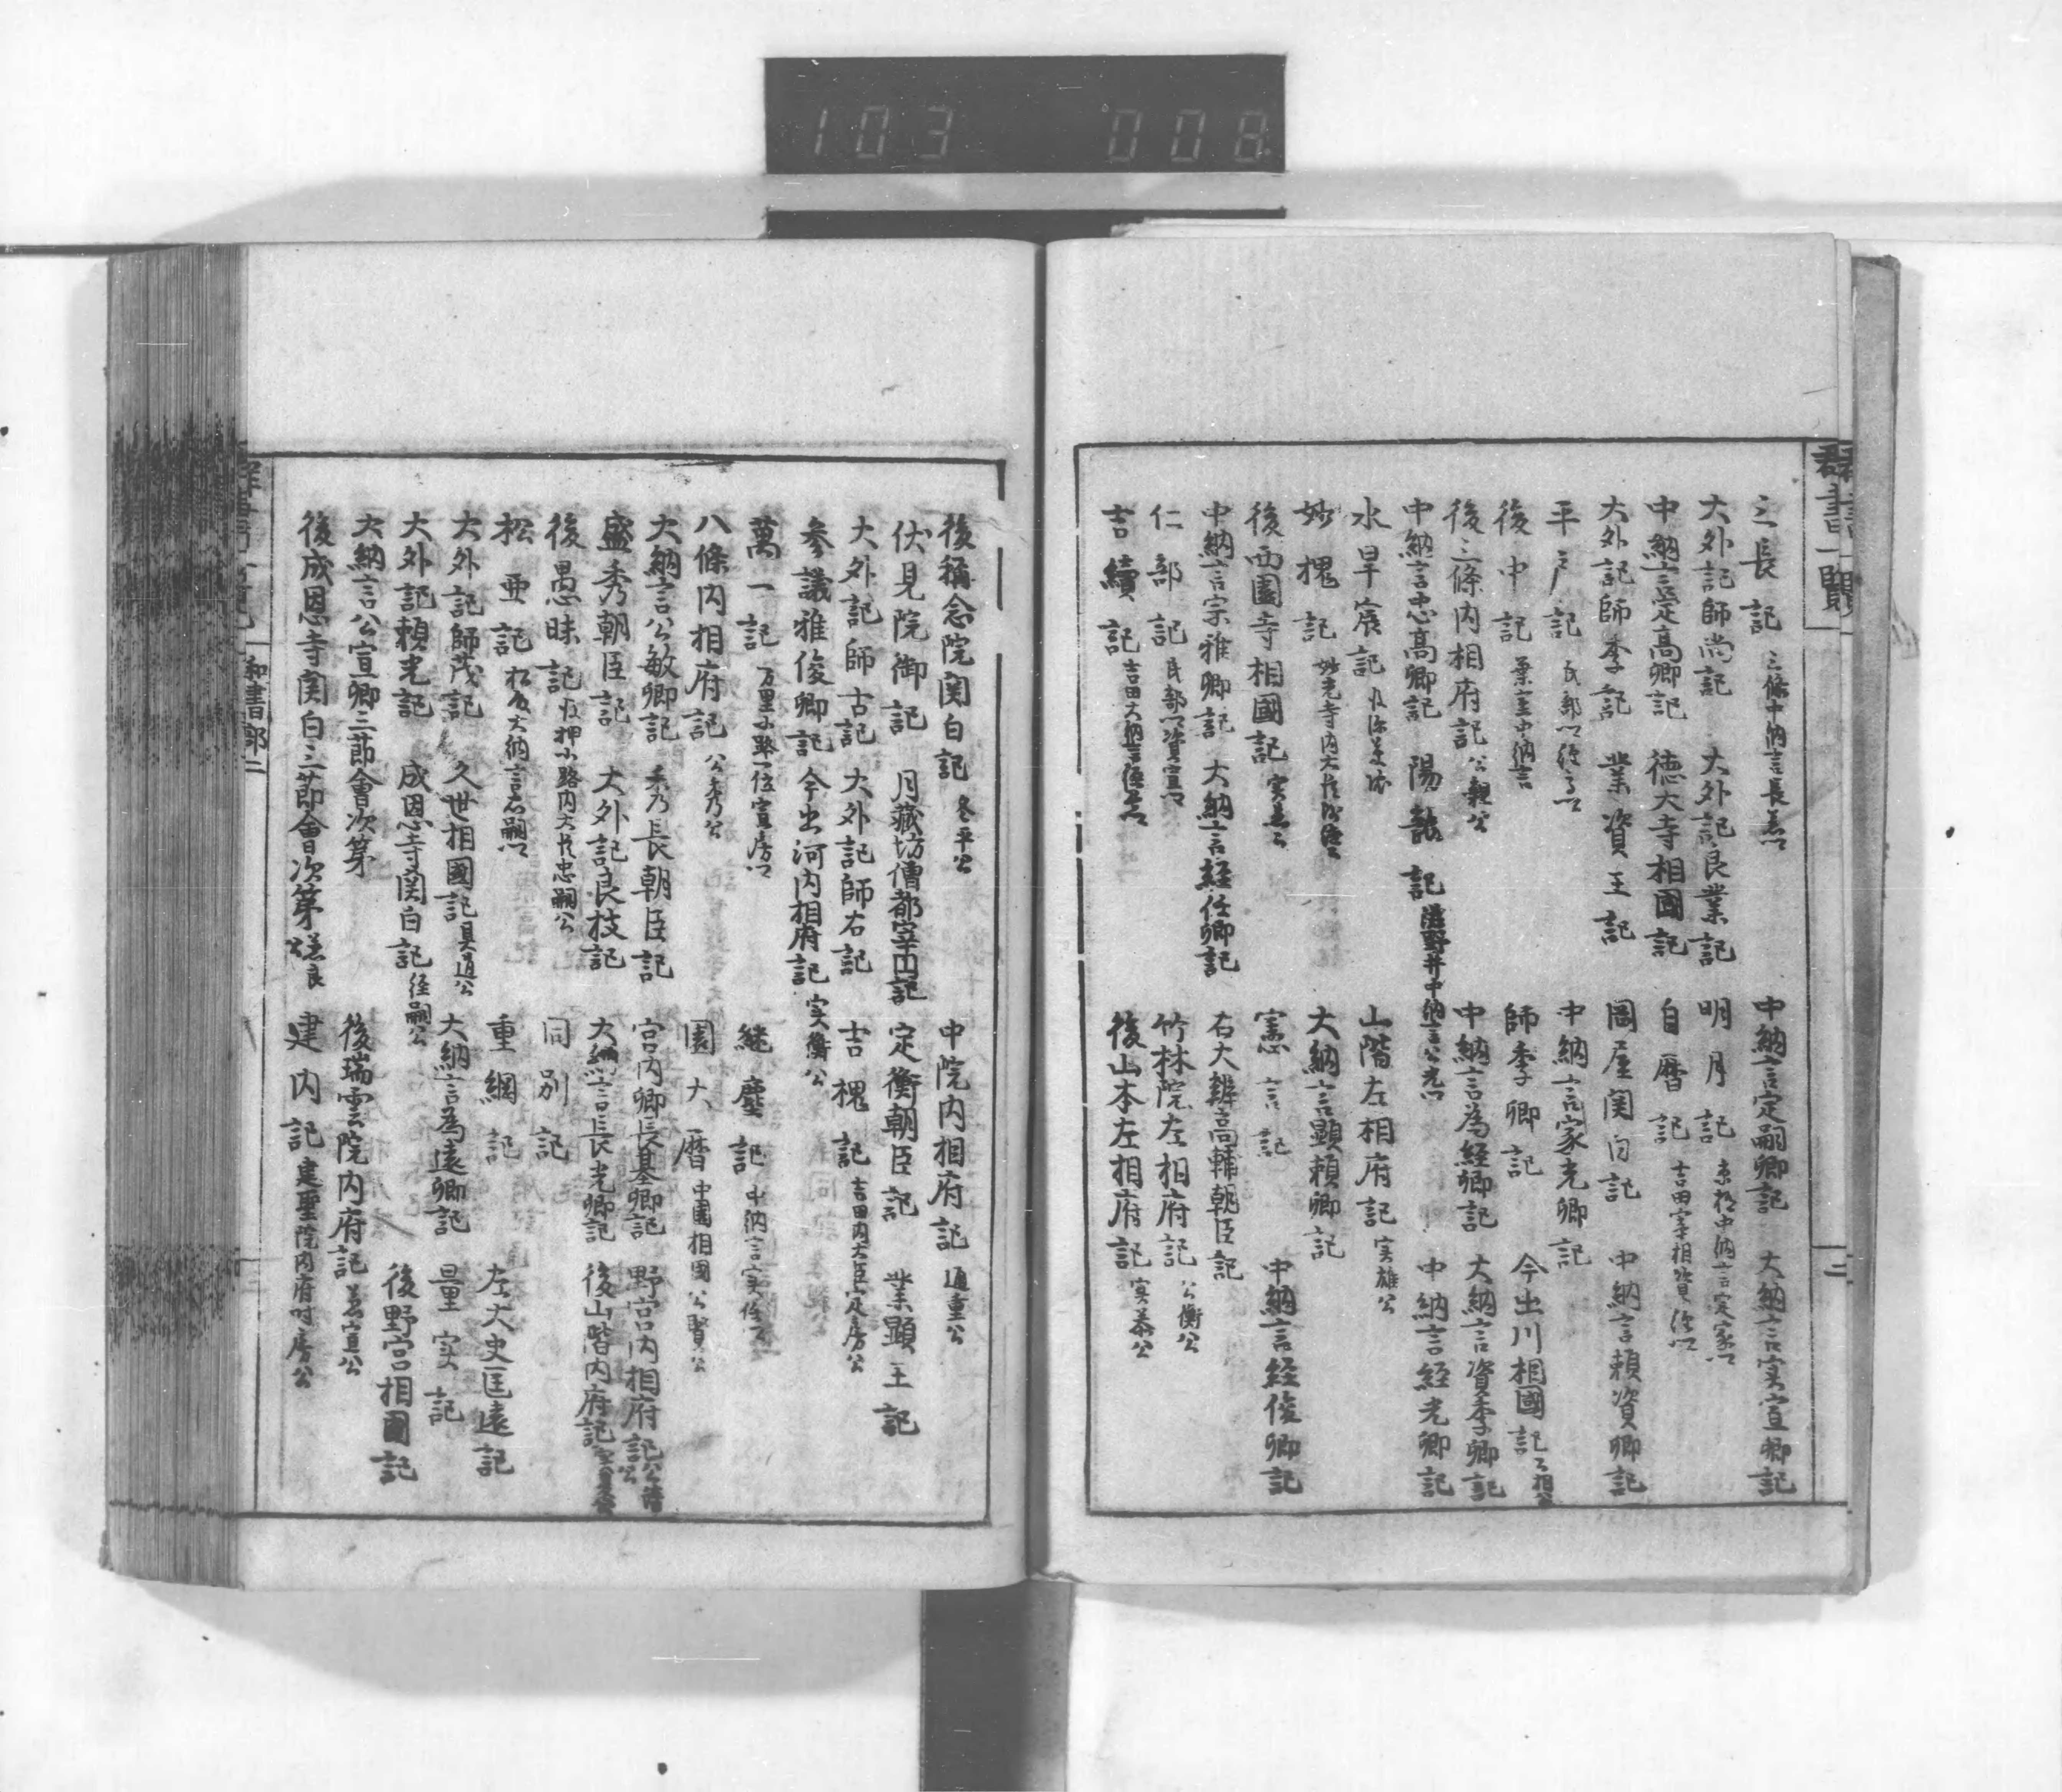 103 008
群書一覽
三
三長記 三條中納言長兼卿 中納言定嗣卿記 大納言実宣卿記
大外記師尚記 大外記良業記 明月記 京極中納言定家卿
中納言定高卿記 徳大寺相國記 自暦記 吉田宰相資経卿
大外記師季記 業資王記 岡屋関白記 中納言頼資卿記
平戸記 民部卿経高卿 中納言家光卿記
後中記 葉室中納言 師季卿記 今出川相國記
後三條内相府記 公親公 中納言為経卿記 大納言資季卿記
中納言忠高卿記 陽龍記 滋野井中納言公光卿 中納言経光卿記
水早宸記 山階左相府記 実雄公
妙槐記 妙光寺内大臣 大納言顕頼卿記
後西園寺相國記 実兼公 憲言記 中納言経俊卿記
中納言宗雅卿記 大納言経任卿記 右大辨高輔朝臣記
仁部記 民部卿資宣卿 竹林院左相府記 公衡公
吉續記 吉田大納言経長卿 後山本左相府記 実泰公
後稱念院関白記 冬平公 中院内相府記 通重公
伏見院御記 月蔵坊僧都宰円記 定衡朝臣記 業顕王記
大外記師古記 大外記師右記 吉槐記 吉田内大臣定房公
参議雅俊卿記 今出河内相府記 実衡公
萬一記 万里小路一位宣房卿 継塵記 中納言実任卿
八條内相府記 公秀公 園大暦 中園相國公賢公
大納言公敏卿記 秀長朝臣記 宮内卿長基卿記 野宮内相府記 公清公
盛秀朝臣記 大外記良枝記 大納言長光卿記 後山階内府記
後愚昧記 後押小路内大臣忠嗣公 同別記
松亜記 松殿大納言忠嗣卿 重綱記 左大史匡遠記
大外記師茂記 久世相國記 具通公 大納言為遠卿記 量実記
大外記頼元記 成恩寺関白記 経嗣公 後野宮相國記
大納言公宣卿三節會次第 後瑞雲院内府記
後成恩寺関白三節會次第 兼良 建内記 建聖院内府時房公
和書部二